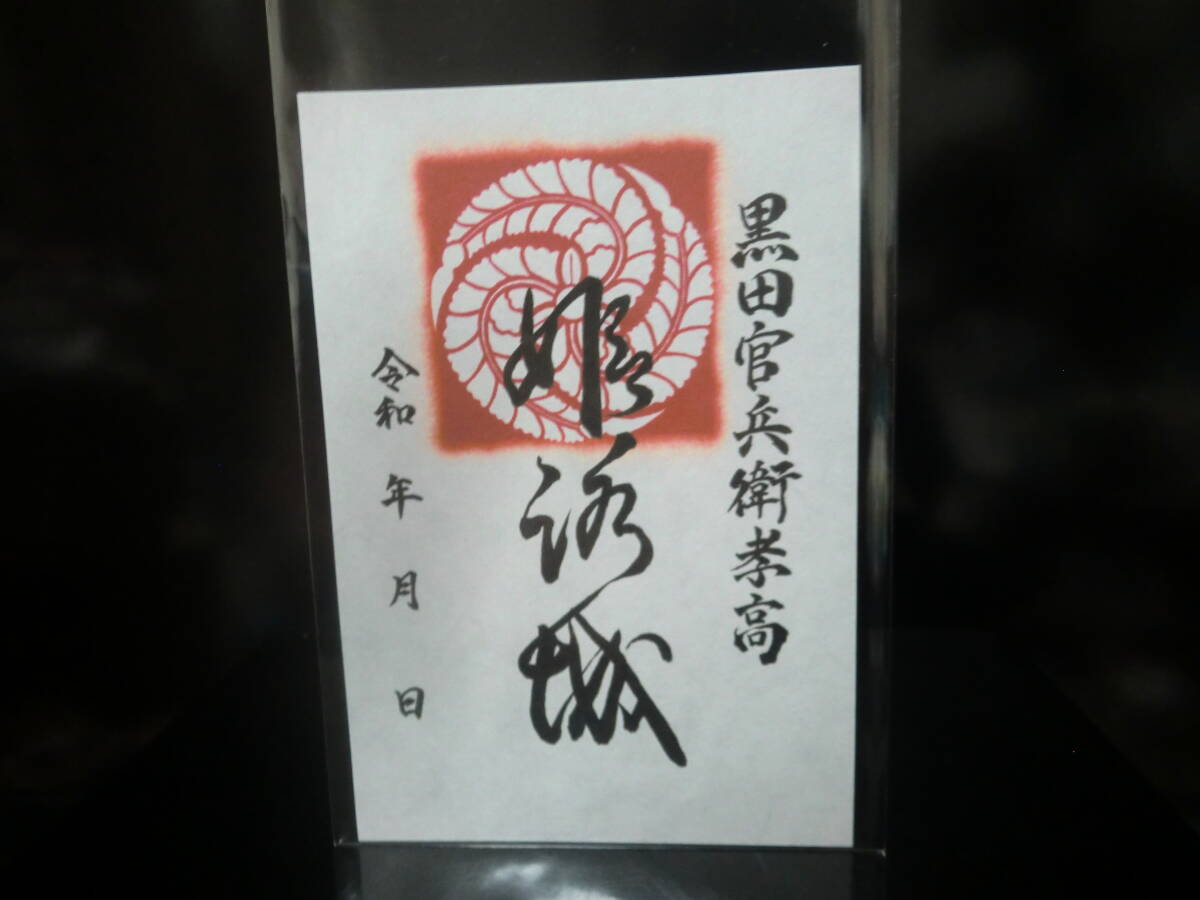 黒田官兵衛孝高
姫路城
令和　年　月　日